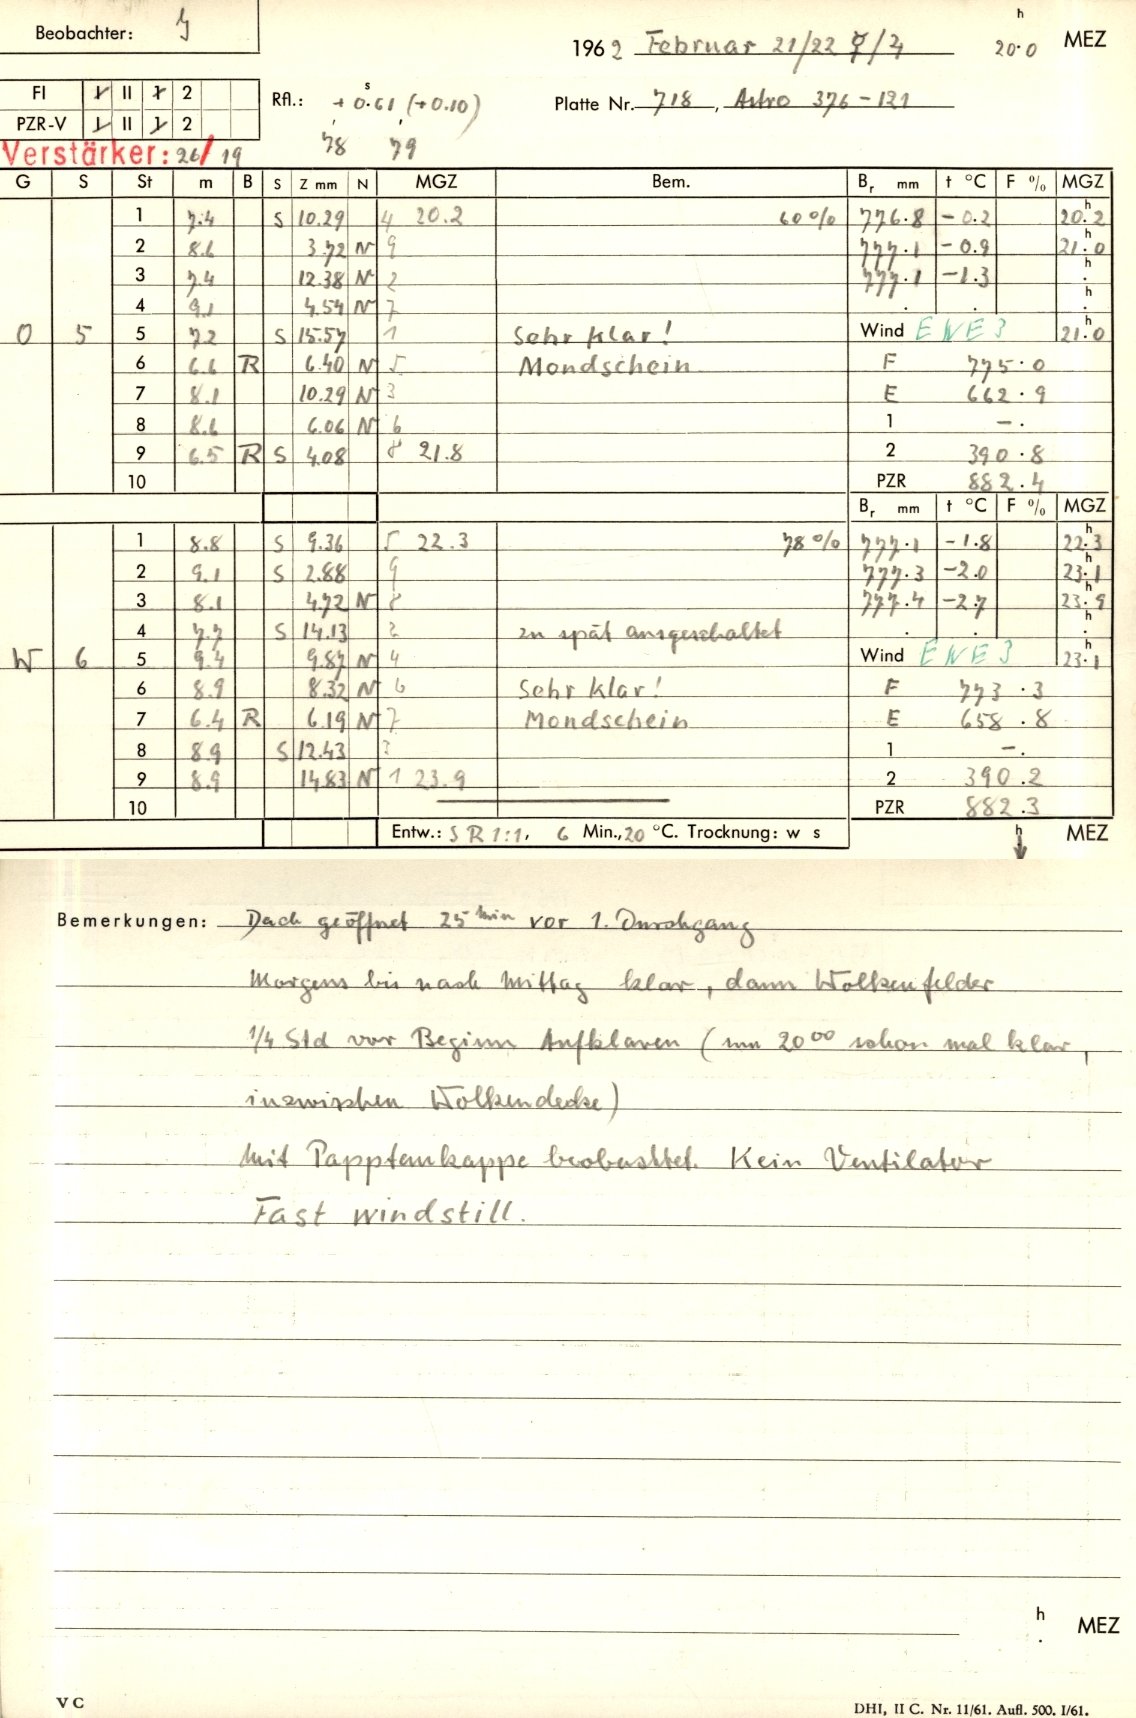 Beobachter: J
1962 Februar 21/22 ☿/♃ 20.0 h MEZ
FI I II 1 2
PZR-V I II 1 2
Rfl.: + 0.61 s (+0.10)
78 79
Platte Nr. 718, Astro 376-121
Verstärker: 26/19
G S St m B S Z mm N MGZ Bem. Br mm t °C F % MGZ
1 7.4 S 10.29 4 20.2 60% 776.8 -0.2 20.2 h
2 8.6 3.72 N 9 777.1 -0.9 21.0 h
3 7.4 12.38 N 2 777.1 -1.3 . h
4 9.1 4.54 N 7 . . . h
O 5 5 7.2 S 15.57 1 Sehr klar! Wind ENE 3 21.0 h
6 6.6 R 6.40 N 5 Mondschein F 775.0
7 8.1 10.29 N 3 E 662.9
8 8.6 6.06 N 6 1 -.
9 6.5 R S 4.08 8 21.8 2 390.8
10 PZR 882.4
Br mm t °C F % MGZ
1 8.8 S 9.36 5 22.3 78% 777.1 -1.8 22.3 h
2 9.1 S 2.88 9 777.3 -2.0 23.1 h
3 8.1 4.72 N 8 777.4 -2.7 23.9 h
4 7.7 S 14.13 2 zu spät ausgeschaltet . . . h
W 6 5 9.4 9.87 N 4 Wind ENE 3 23.1 h
6 8.9 8.32 N 6 Sehr klar! F 773.3
7 6.4 R 6.19 N 7 Mondschein E 658.8
8 8.9 S 12.43 3 1 -.
9 8.9 14.83 N 1 23.9 2 390.2
10 PZR 882.3
Entw.: SR 1:1, 6 Min., 20 °C. Trocknung: w s h MEZ
Bemerkungen: Dach geöffnet 25 min vor 1. Durchgang
Morgens bis nach Mittag klar, dann Wolkenfelder
1/4 Std vor Beginn Aufklaren (um 20 00 schon mal klar,
inzwischen Wolkendecke)
Mit Papptaukappe beobachtet. Kein Ventilator
Fast windstill.
h . MEZ
V C
DHI, II C. Nr. 11/61. Aufl. 500. I/61.